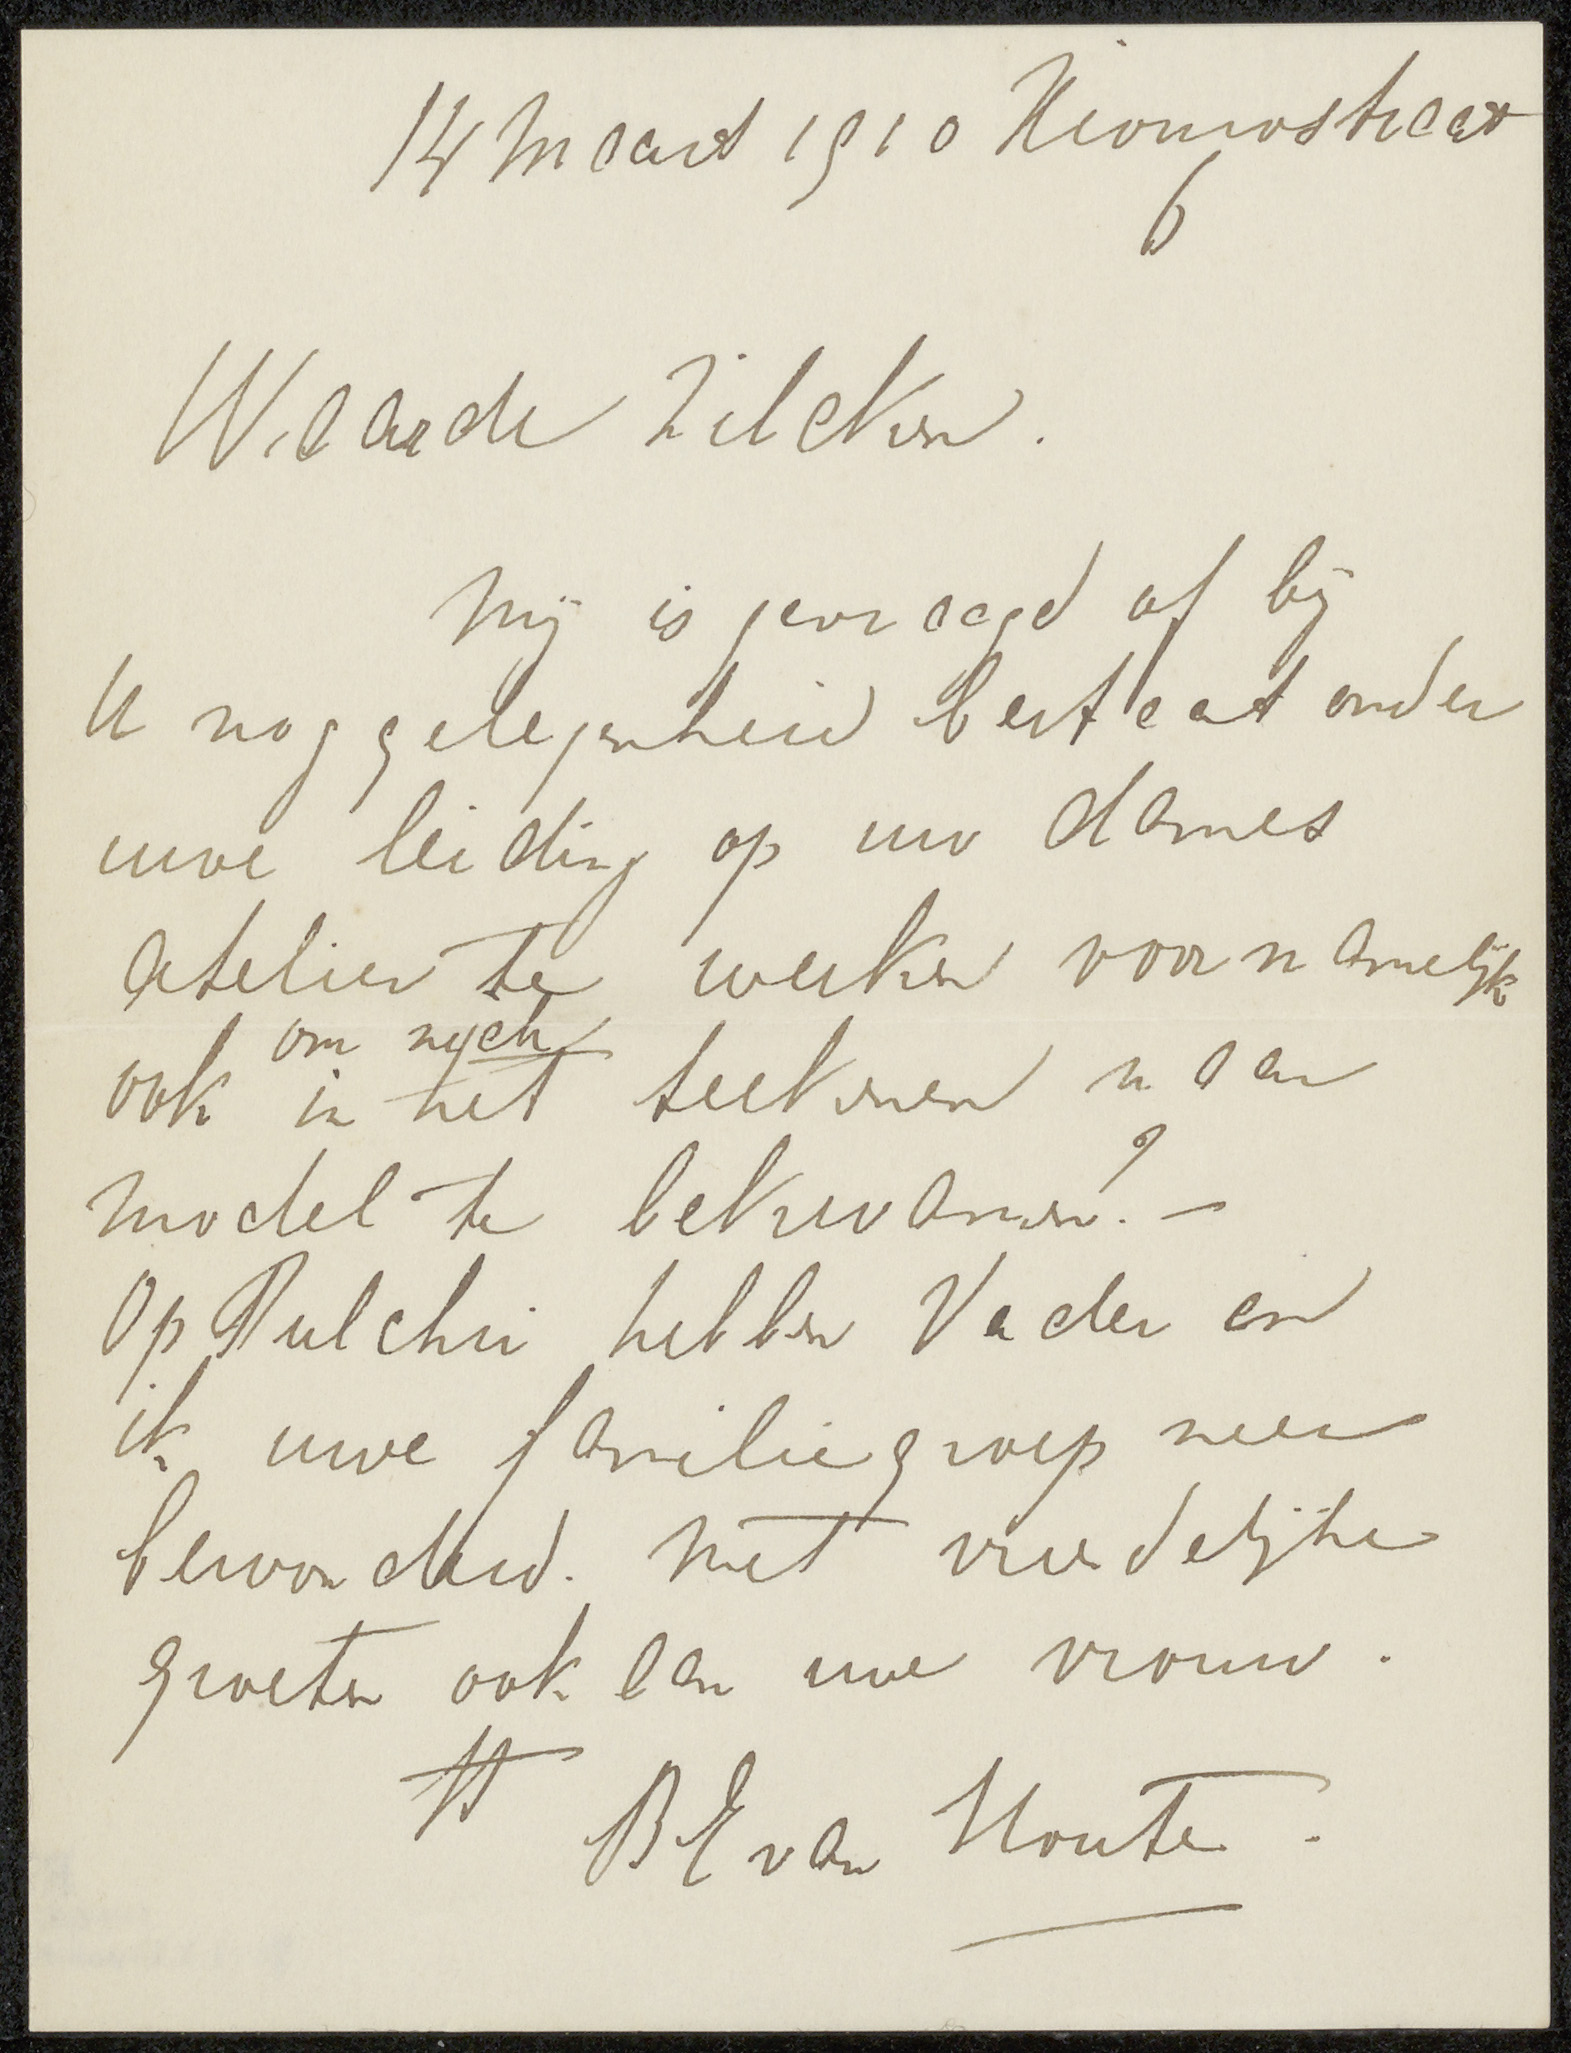 14 Maart 1910 Nieuwstraat
6
Waarde Zilcken.
Mij is gevraagd of bij
U nog gelegenheid bestaat onder
uwe leiding op uw dames
atelier te werken voornamelijk
om zich
ook in het teekenen naar
model te bekwamen? –
Op Pulchri hebben Vader en
ik uwe familiegroep zeer
bewonderd. Met vriendelijke
groeten ook aan uwe vrouw.
BE van Houten.